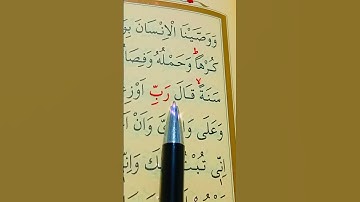 وَوَصَّيْنَا الْاِنْسَانَ بِوَ
كُرْهاًۜ وَحَمْلُهُ وَفِصَا
سَنَةًۙ قَالَ رَبِّ اَوْزِعْ
وَعَلٰى وَاَنْ
اِنّ۪ي تُبْتُ وَاِنّ